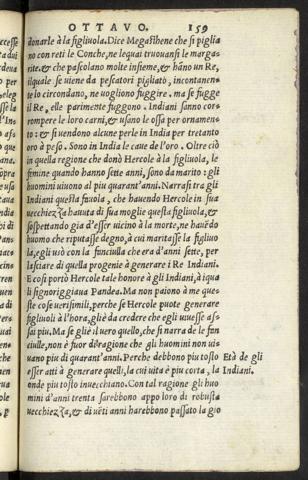 OTTAVO. 159
donarle à la figliuola. Dice Megasthene che si piglia
no con reti le Conche, ne lequai trouansi le marga-
rite: & che pascolano molte insieme, & hāno un Re,
ilquale se uiene da pescatori pigliato, incontanen-
te lo circondano, ne uogliono fuggire. ma se fugge
il Re, elle parimente fuggono. Indiani sanno cor-
rompere le loro carni, & usano le ossa per ornamen-
to: & si uendono alcune perle in India per tretanto
oro à peso. Sono in India le caue de l'oro. Oltre ciò
in quella regione che donò Hercole à la figliuola, le
femine quando hanno sette anni, sono da marito: gli
huomini uiuono al piu quarant'anni. Narrasi tra gli
Indiani questa fauola, che hauendo Hercole in sua
uecchiezza hauuta di sua moglie questa figliuola, &
sospettando gia d'esser uicino à la morte, ne hauēdo
huomo che riputasse degno, à cui maritasse la figliuo
la, egli usò con la fanciulla che era d'anni sette, per
lasciare di quella progenie à generare i Re Indiani.
E cosi portò Hercole tale honore à gli Indiani, à iqua
li signoriggiaua Pandea. Ma non paiono à me que-
ste cose uerisimili, perche se Hercole puote generare
figliuoli à l'hora, gliè da credere che egli uiuesse as-
sai piu. Ma se gliè il uero quello, che si narra de le fan
ciulle, non è fuor di ragione che gli huomini non ui-
uano piu di quarant'anni. Perche debbono piu tosto
esser atti à generare quelli, la cui uita è piu corta,
onde piu tosto inuecchiano. Con tal ragione gli huo
mini d'anni trenta sarebbono appo loro di robusta
uecchiezza, & di uēti anni harebbono passato la gio
Età de gli
Indiani.